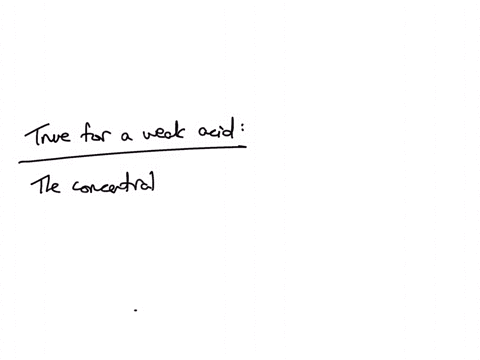 True for a weak acid:
The concentral